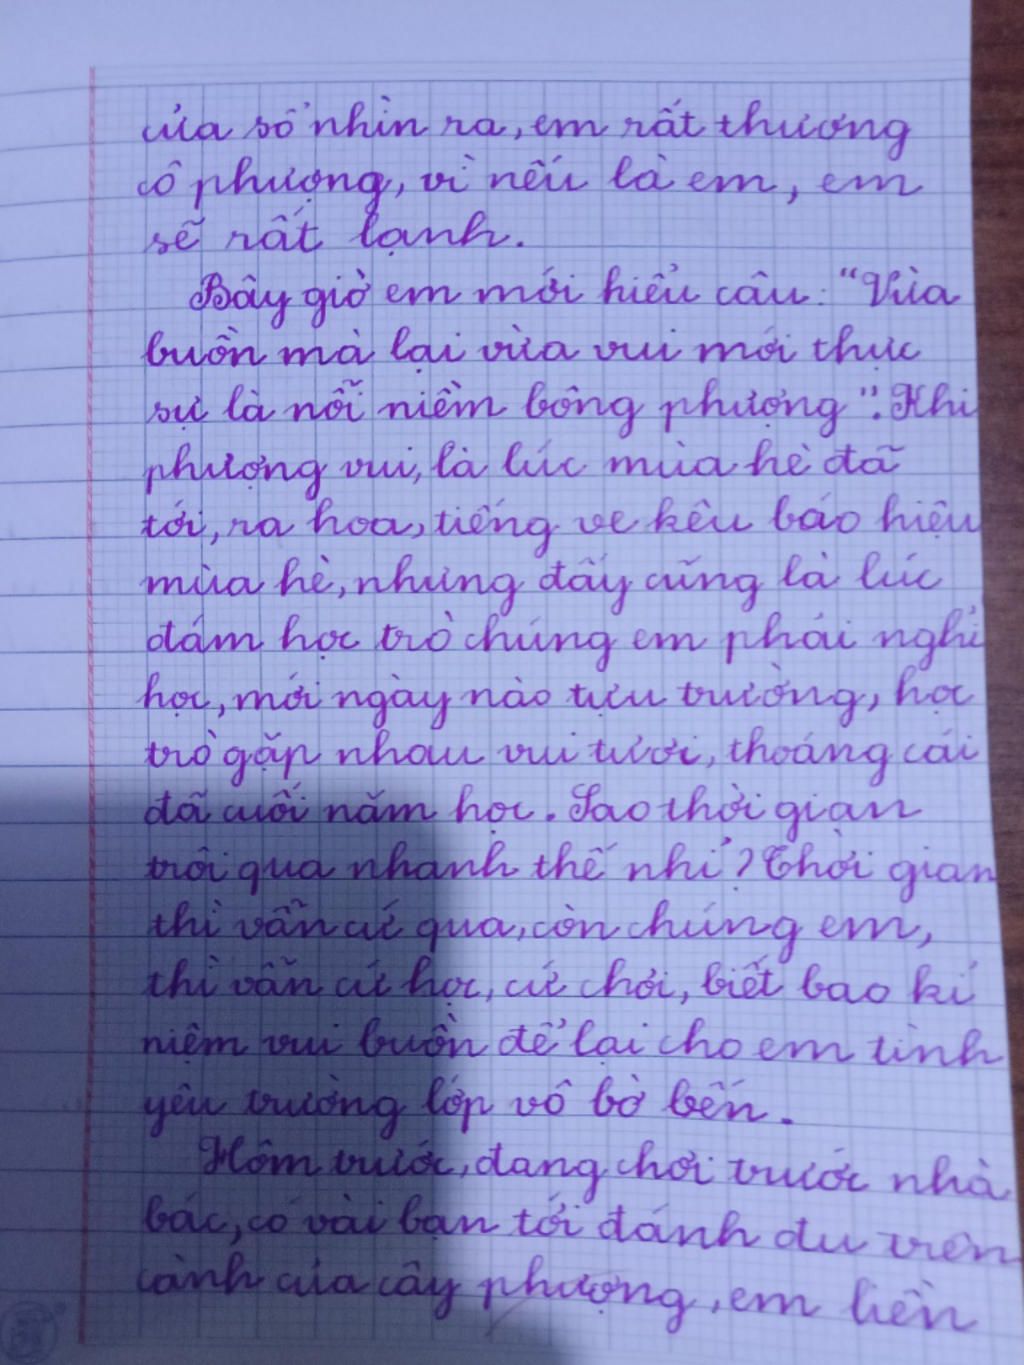 cửa sổ nhìn ra, em rất thương
cô phượng, vì nếu là em, em
sẽ rất lạnh.
Bây giờ em mới hiểu câu: "Vừa
buồn mà lại vừa vui mới thực
sự là nỗi niềm bông phượng". Khi
phượng vui, là lúc mùa hè đã
tới, ra hoa, tiếng ve kêu báo hiệu
mùa hè, nhưng đấy cũng là lúc
đám học trò chúng em phải nghỉ
học, mới ngày nào tựu trường, học
trò gặp nhau vui tươi, thoáng cái
đã cuối năm học. Sao thời gian
trôi qua nhanh thế nhỉ? Thời gian
thì vẫn cứ qua, còn chúng em,
thì vẫn cứ học, cứ chơi, biết bao kí
niệm vui buồn để lại cho em tình
yêu trường lớp vô bờ bến.
Hôm trước, đang chơi trước nhà
bác, có vài bạn tới đánh đu trên
cành của cây phượng, em liền